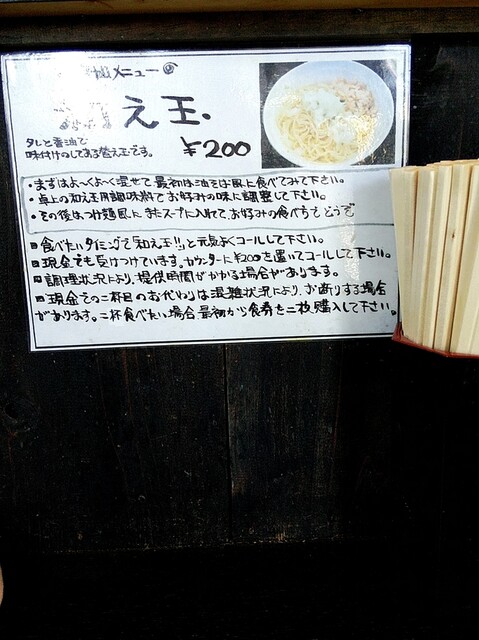 メニュー
え玉.
タレと香油で
味付けのしてある替え玉です。
¥200
・まずはよ〜くよ〜く混ぜて最初は油そば風に食べてみて下さい。
・卓上の和え玉用調味料でお好みの味に調整して下さい。
・その後はつけ麺風に またスープに入れて お好みの食べ方でどうぞ
食べたいタイミングで「和え玉!!」と元気よくコールして下さい。
現金でも受けつけています。カウンターに¥200を置いてコールして下さい。
調理状況により、提供時間がかかる場合があります。
現金での二杯目のおかわりは混雑状況により、お断りする場合
があります。二杯食べたい場合最初から食券を二枚購入して下さい。